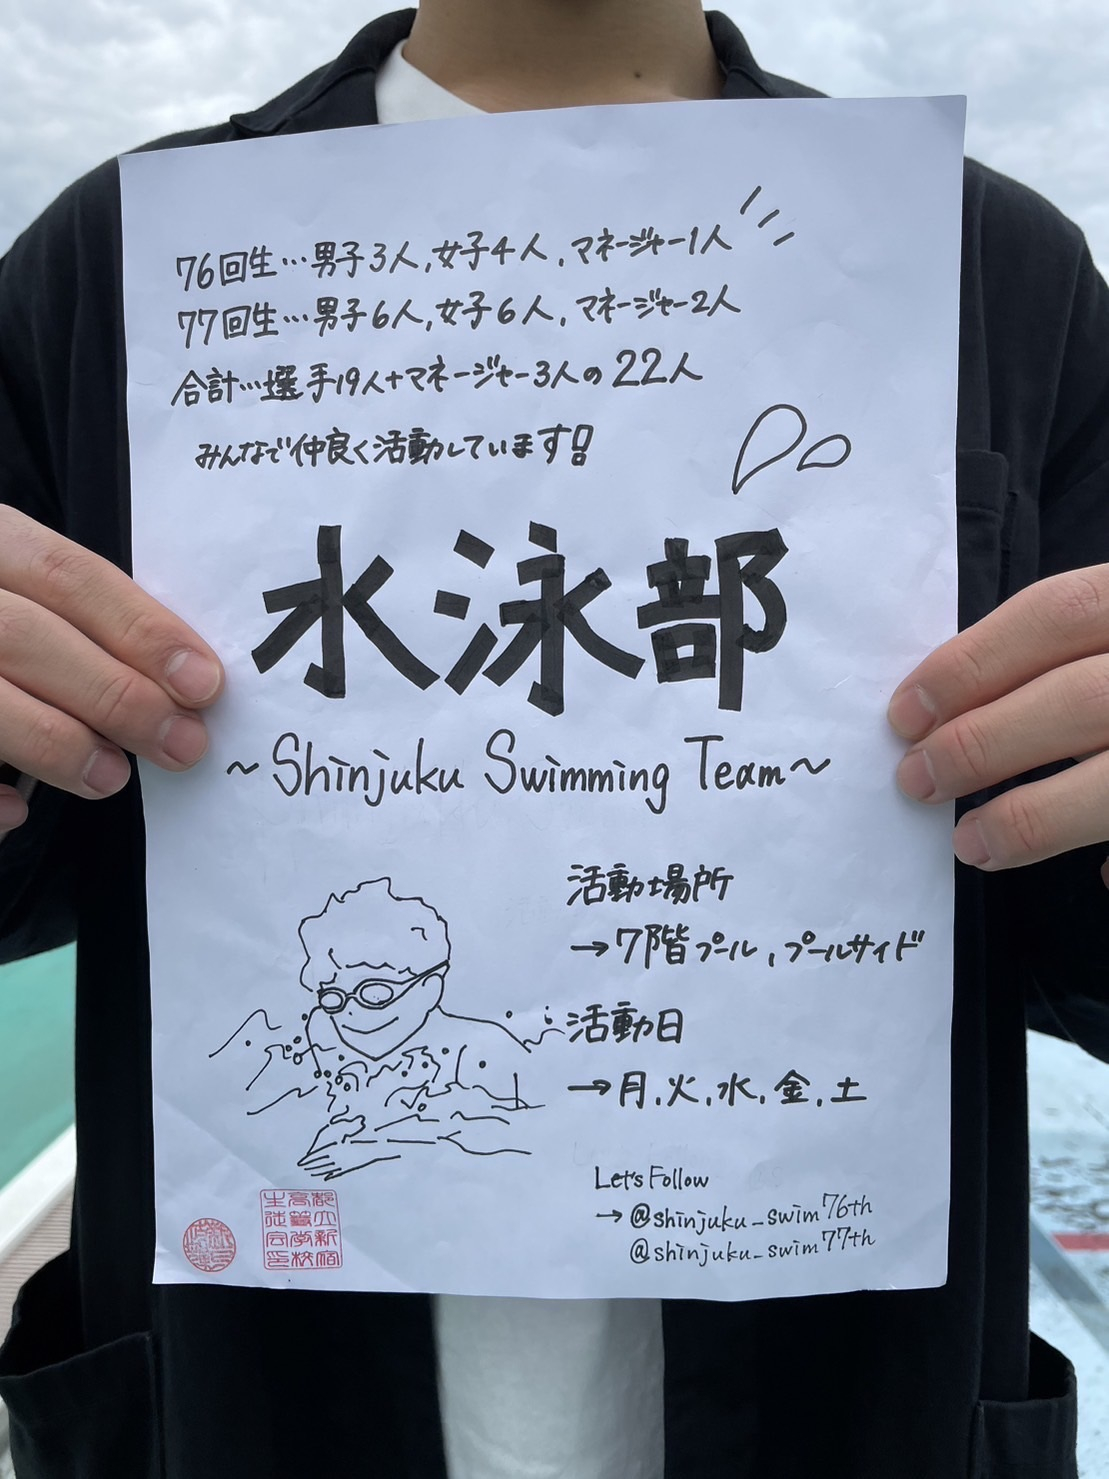 76回生…男子3人,女子4人,マネージャー1人
77回生…男子6人,女子6人,マネージャー2人
合計…選手19人+マネージャー3人の22人
みんなで仲良く活動しています!
水泳部
~Shinjuku Swimming Team~
活動場所
→7階プール,プールサイド
活動日
→月,火,水,金,土
Let's Follow
→@shinjuku_swim76th
@shinjuku_swim77th
都立新宿
高等学校
生徒会印